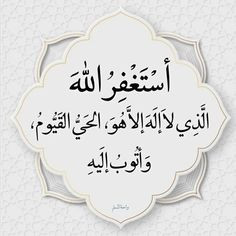 أَسْتَغْفِرُ اللهَ
الَّذِي لاَ إِلَهَ إِلاَّ هُوَ، الحَيُّ القَيُّومُ،
وَأَتُوبُ إِلَيهِ